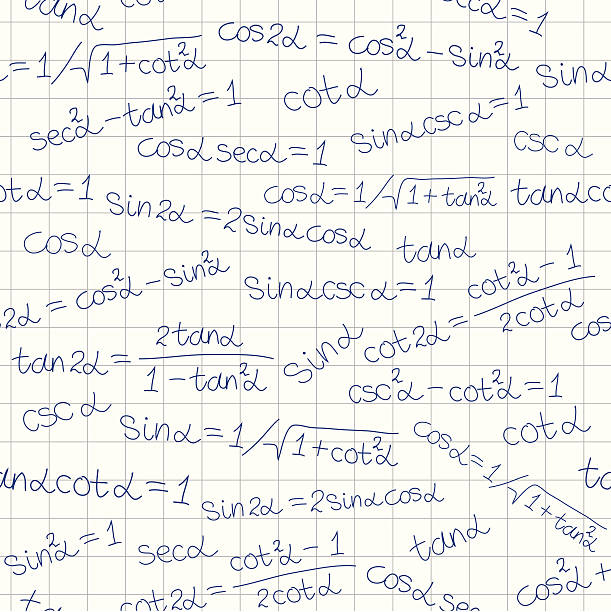 tanα
cscα = 1
cos2α = cos²α − sin²α
= 1/√1+cot²α
sinα
sec²α − tan²α = 1
cotα
sinαcscα = 1
cscα
cosαsecα = 1
otα = 1
cosα = 1/√1+tan²α
tanαco
sin2α = 2sinαcosα
cosα
tanα
2α = cos²α − sin²α
sinαcscα = 1
cot2α = cot²α − 1 / 2cotα
cos
tan2α = 2tanα / 1 − tan²α
sinα
csc²α − cot²α = 1
cscα
sinα = 1/√1+cot²α
cosα = 1/√1+tan²α
cotα
anαcotα = 1
sin2α = 2sinαcosα
sin²α = 1
secα
cot2α = cot²α − 1 / 2cotα
tanα
cosαsec
cos²α +